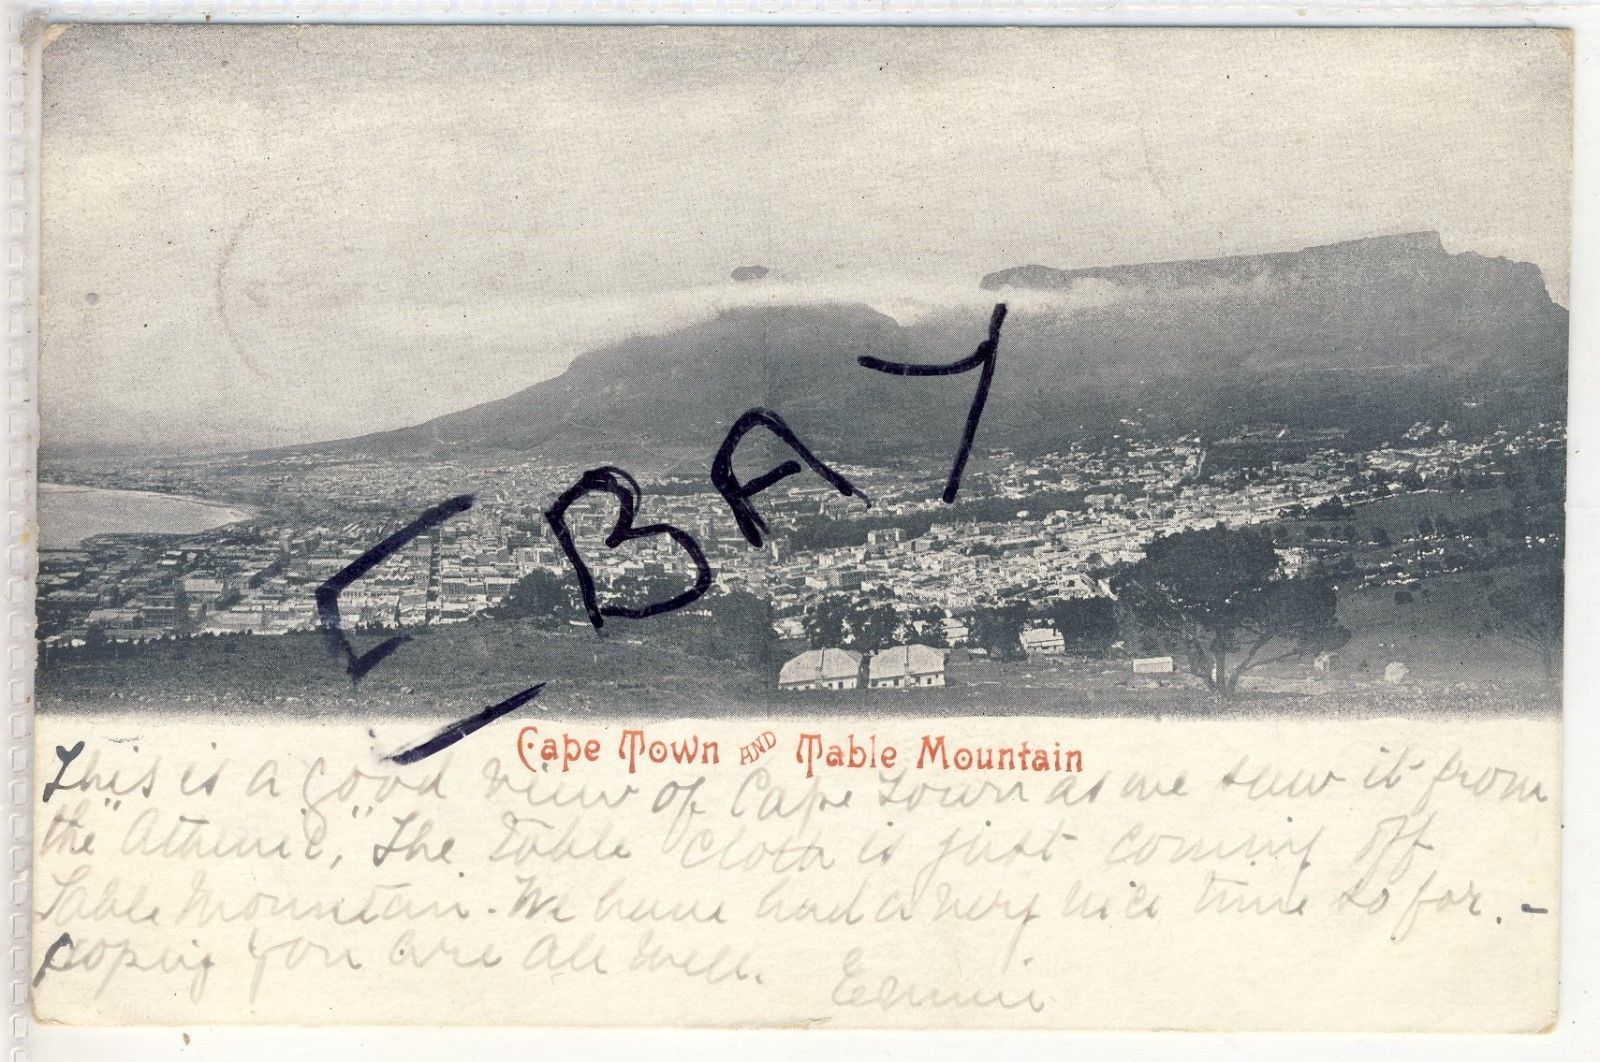 EBAY
Cape Town AND Table Mountain
This is a good view of Cape Town as we saw it from
the "Athenic," The Table Cloth is just coming off
Table Mountain. We have had a very nice time so far. -
Hoping you are all well.
Ernie